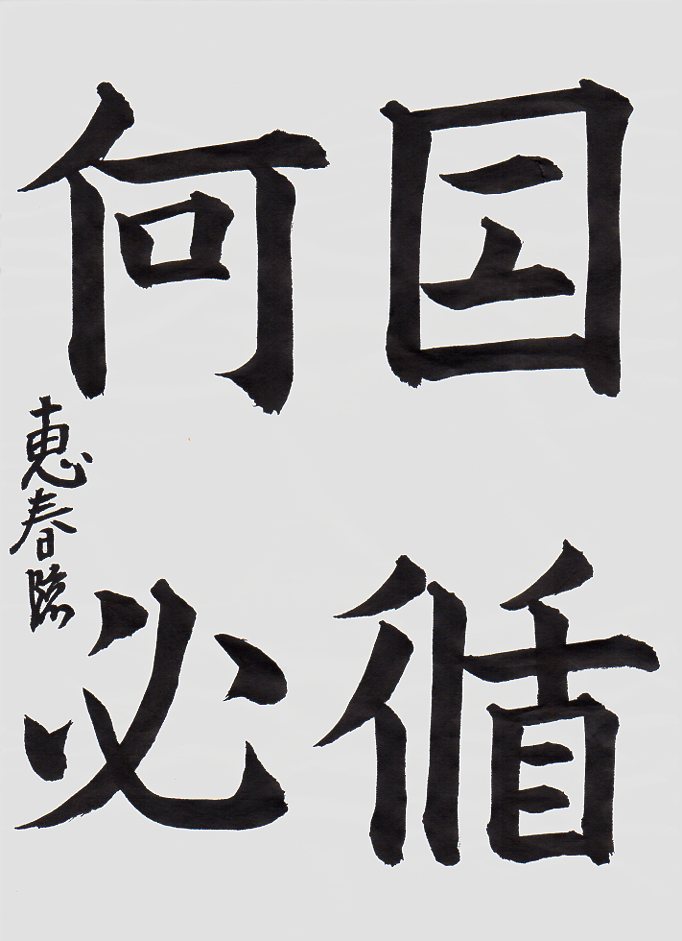 囙循
何必
恵春臨